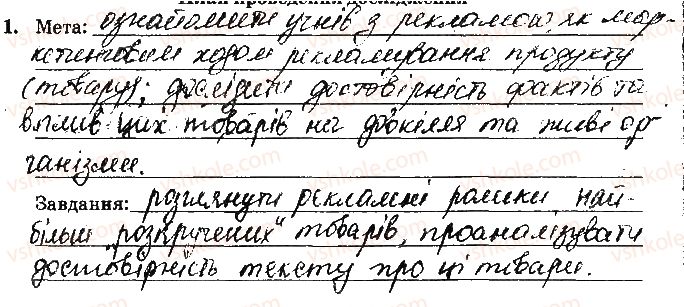 План проведення дослідження
1. Мета: ознайомити учнів з рекламою як мар-
кетинговим ходом рекламування продукту
(товару); дослідити достовірність фактів та
вплив цих товарів на довкілля та живі ор-
ганізми.
Завдання: розглянути рекламні ролики най-
більш „розкручених" товарів, проаналізувати
достовірність тексту про ці товари.